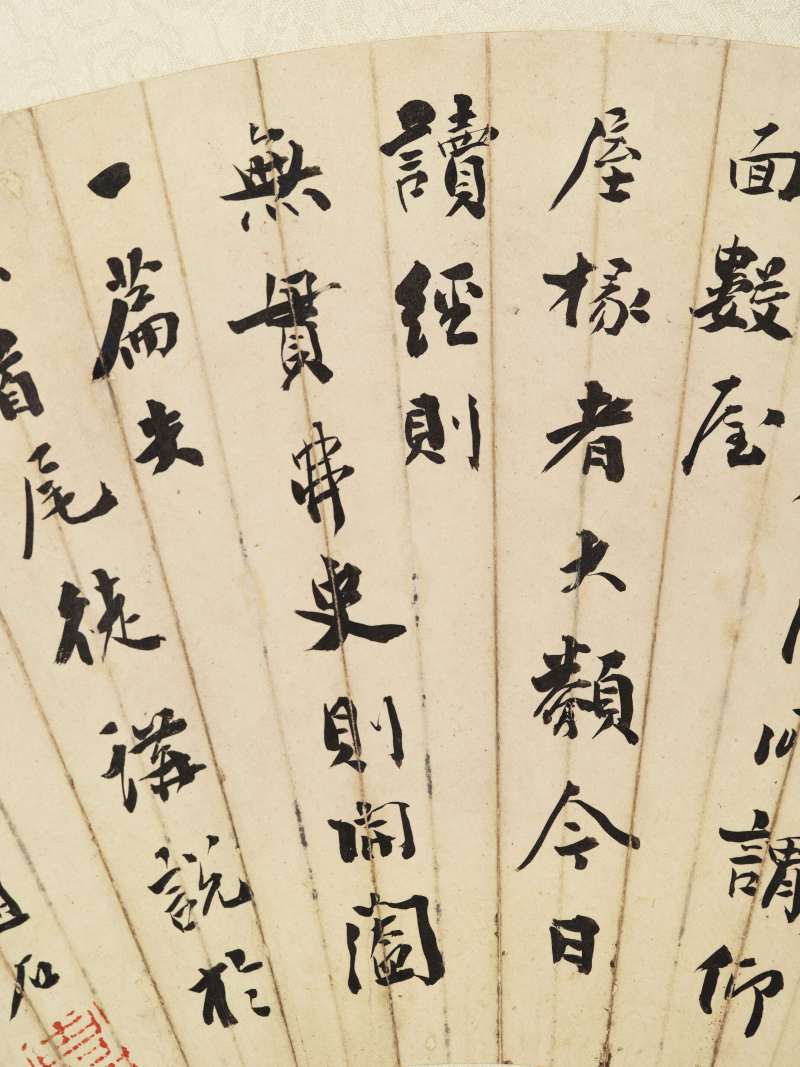 面數屋
謂仰
屋椽者大類今日
讀經則
無貫串史則開闔
一篇失
首尾徒講說於